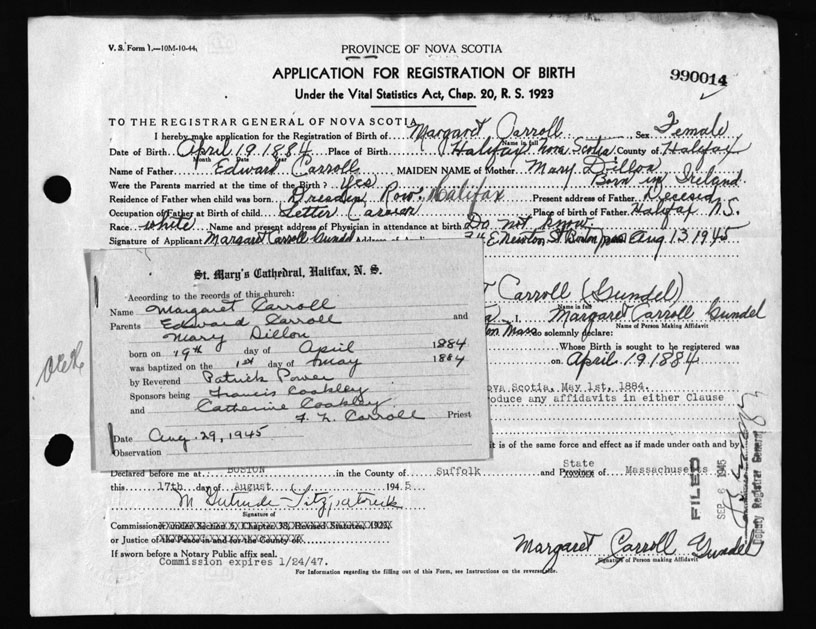 V. S. Form 1.—10M-10-44
PROVINCE OF NOVA SCOTIA
APPLICATION FOR REGISTRATION OF BIRTH
990014
Under the Vital Statistics Act, Chap. 20, R. S. 1923
TO THE REGISTRAR GENERAL OF NOVA SCOTIA
I hereby make application for the Registration of Birth of Margaret Carroll Sex Female
Name in full
Date of Birth April 19 1884 Place of Birth Halifax Nova Scotia County of Halifax
Month Date Year
Name of Father Edward Carroll MAIDEN NAME of Mother Mary Dillon
Were the Parents married at the time of the Birth? yes Born in Ireland.
Residence of Father when child was born Dresden Row. Halifax Present address of Father
Occupation of Father at Birth of child Letter Place of birth of Father Halifax N.S.
Race white Name and present address of Physician in attendance at birth Do not know
Signature of Applicant Margaret Carroll Gundel E Newton St Boston Aug 13 1945
St. Mary's Cathedral, Halifax, N. S.
According to the records of this church:
Name Margaret Carroll
Parents Edward Carroll and
Mary Dillon
born on 19th day of April 1884
was baptized on the 1st day of May 1884
by Reverend Patrick Power
Sponsors being Francis Coakley
and Catherine Coakley
F. L. Carroll Priest
Date Aug. 29, 1945
Observation
Carroll (Gundel)
Name in full
Margaret Carroll Gundel
Name of Person Making Affidavit
Mass do solemnly declare:
Whose Birth is sought to be registered was
on April 19 1884
ova Scotia, May 1st, 1884.
oduce any affidavits in either Clause
it is of the same force and effect as if made under oath and by
Declared before me at BOSTON in the County of Suffolk and State Province of Massachusetts
this 17th day of august 1945
M Gertrude Fitzpatrick
Signature of
Commissioner under Section 5, Chapter 38, Revised Statutes, 1923,
or Justice of the Peace in and for the County of
If sworn before a Notary Public affix seal.
Commission expires 1/24/47.
Margaret Carroll Gundel
Signature of Person making Affidavit
For Information regarding the filling out of this Form, see Instructions on the reverse
FILED
SEP 6 1945
Deputy Registrar General